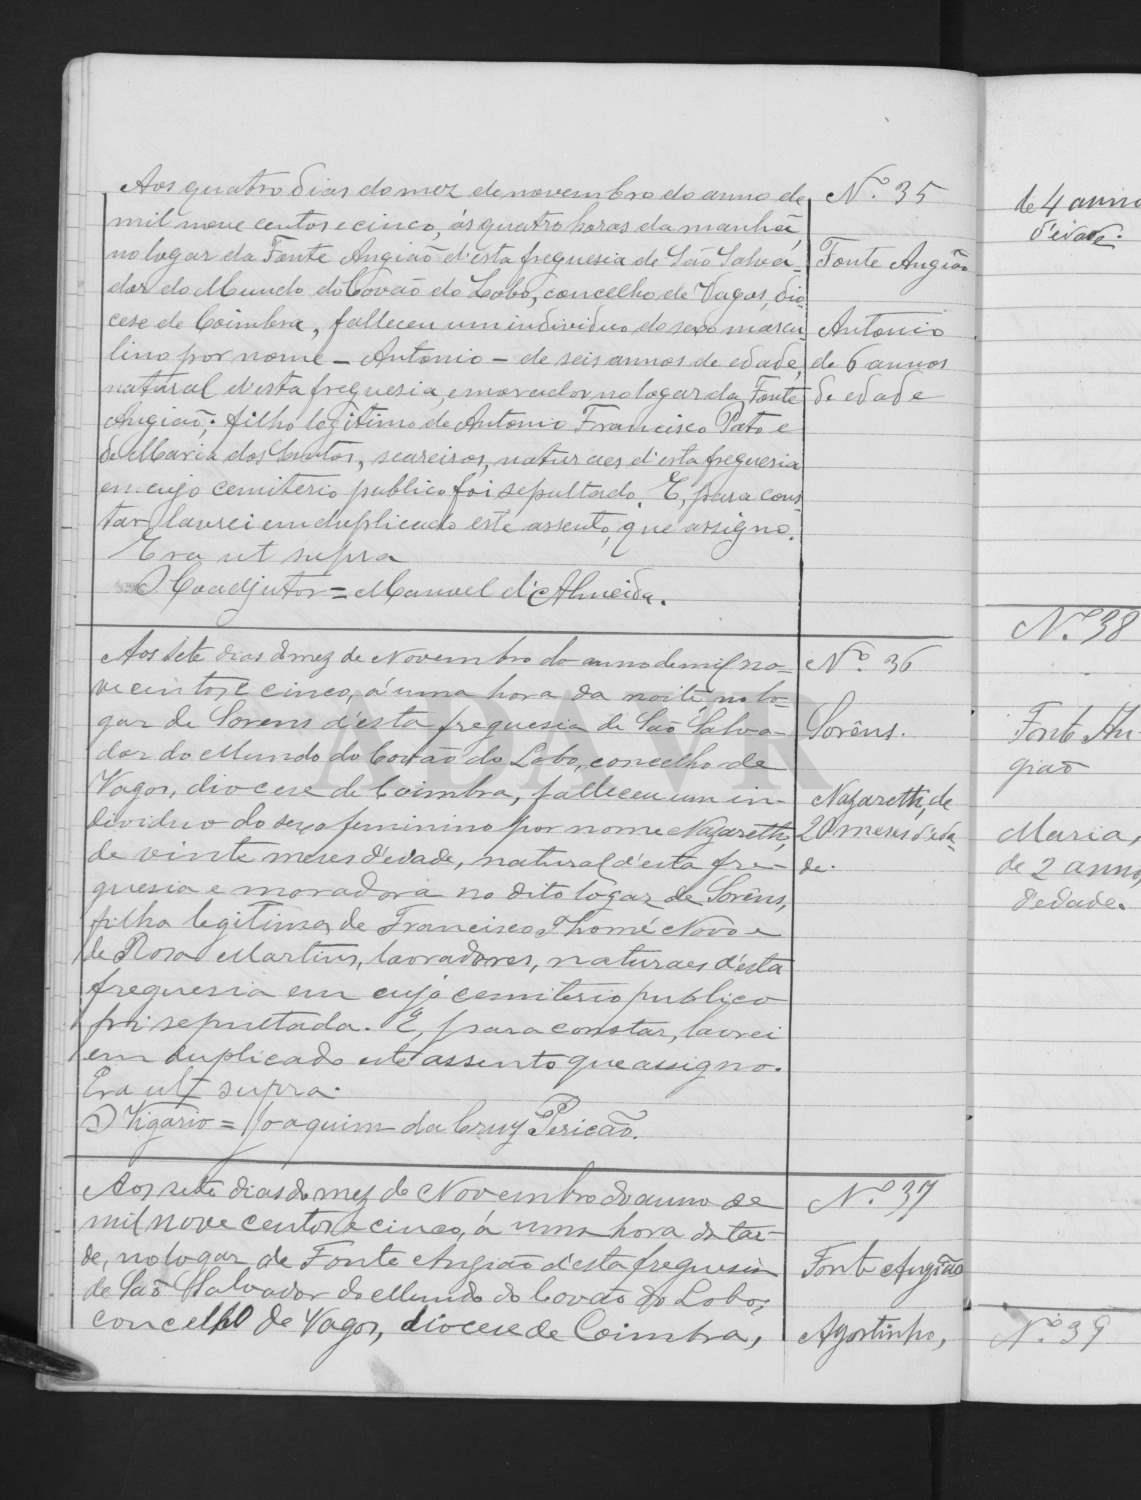 Aos quatro dias do mez de novembro do anno de
mil nove centos e cinco, ás quatro horas da manhã,
no logar da Fonte Angião d'esta freguesia de São Salva-
dor do Mundo do Covão do Lobo, concelho de Vagos, dio-
cese de Coimbra, falleceu um individuo do sexo mascu-
lino por nome - Antonio - de seis annos de edade,
natural d'esta freguesia, e morador no logar da Fonte
Angião; filho legitimo de Antonio Francisco Pato e
de Maria dos Santos, seareiros, naturaes d'esta freguesia
em cujo cemiterio publico foi sepultado. E, para cons-
tar lavrei em duplicado este assento, que assigno.
Era ut supra
O Coadjutor = Manuel d'Almeida.
Nº 35
Fonte Angião
Antonio
de 6 annos
de edade
Aos sete dias do mez de Novembro do anno de mil no-
ve centos e cinco, á uma hora da noite, no lo-
gar de Sorens d'esta freguesia de São Salva-
dor do Mundo do Covão do Lobo, concelho de
Vagos, diocese de Coimbra, falleceu um in-
dividuo do sexo feminino por nome Nazareth,
de vinte meses d'edade, natural d'esta fre-
guesia e moradora no dito logar de Sorêns,
filha legitima de Francisco Thomé Novo e
de Rosa Martins, lavradores, naturaes d'esta
freguesia em cujo cemiterio publico
foi sepultada. E, para constar, lavrei
em duplicado este assento que assigno.
Era ut supra.
O Vigario = Joaquim da Cruz Pericão.
Nº 36
Sorêns.
Nazareth, de
20 meses d'eda-
de.
Aos sete dias do mez de Novembro do anno de
mil nove centos e cinco, á uma hora da tar-
de, no logar de Fonte Angião d'esta freguesia
de São Salvador do Mundo do Covão do Lobo,
concelho de Vagos, diocese de Coimbra,
Nº 37
Fonte Angião
Agostinho,
de 4 anno
d'edade.
Nº 38
Fonte An-
gião
Maria,
de 2 anno,
d'edade.
Nº 39
ADAVR